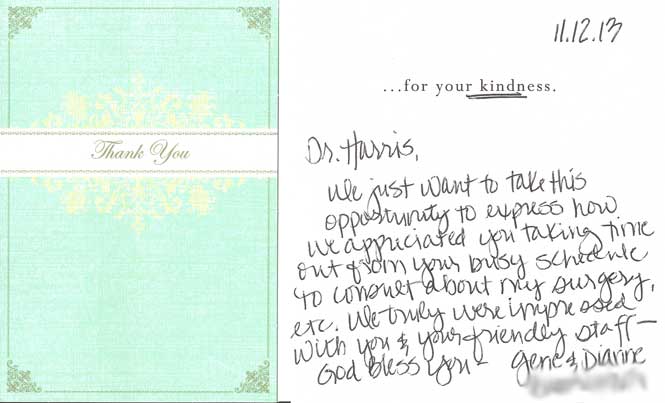 Thank You
11.12.13
...for your kindness.
Dr. Harris,
We just want to take this
opportunity to express how
we appriciated you taking time
out from your busy schedule
to consult about my surgery,
etc. We truly were impressed
with you & your friendly staff—
God Bless You – Gene & Dianne